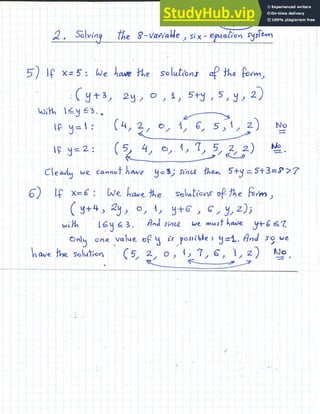 StudyHub.vip
Experienced writers
On-time delivery
100% plagiarism free
2. Solving the 8-variable, six-equation system
5) If x=5: We have the solutions of the form,
(y+3, 2y, 0, 1, 5+y, 5, y, 2)
With 1≤y≤3.
If y=1: (4, 2, 0, 1, 6, 5, 1, 2) No
If y=2: (5, 4, 0, 1, 7, 5, 2, 2) No.
Clearly we cannot have y=3; since then 5+y=5+3=8>7
6) If x=6: We have the solutions of the form,
(y+4, 2y, 0, 1, y+6, 6, y, 2);
with 1≤y≤3. And since we must have y+6≤7.
Only one value of y is possible: y=1. And so we
have the solution (5, 2, 0, 1, 7, 6, 1, 2) No.